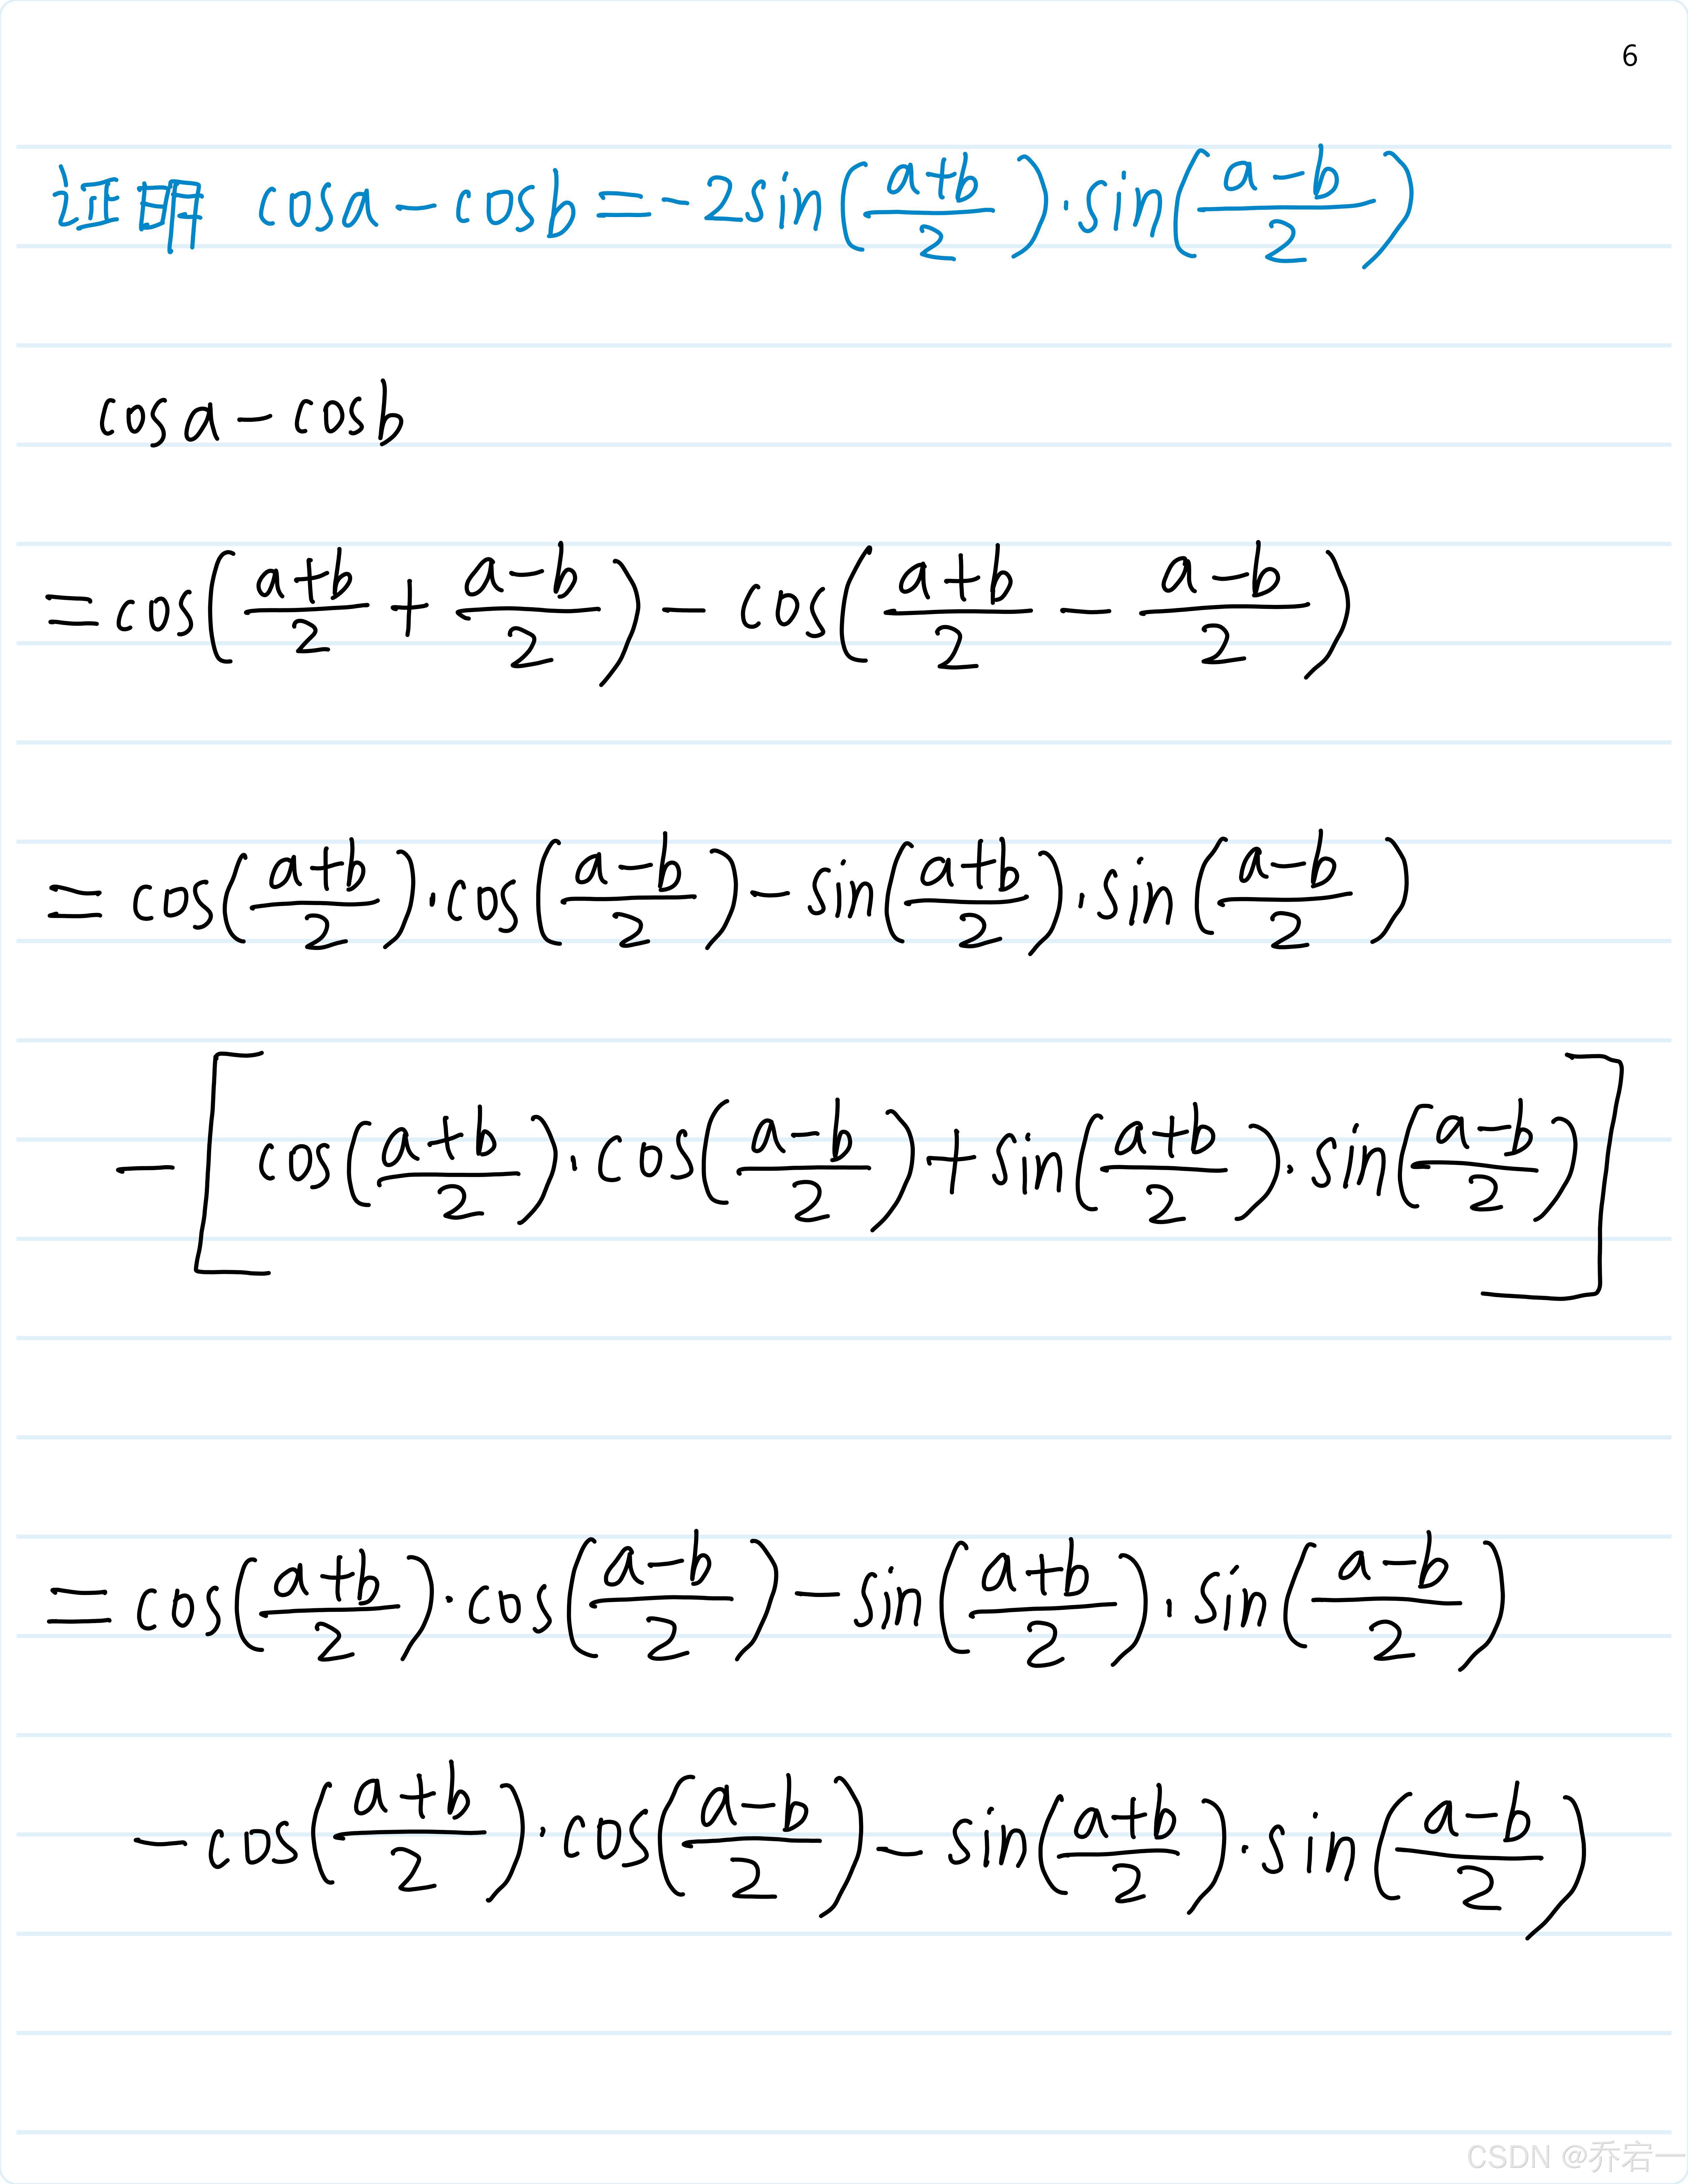 6
证明 cos a - cos b = -2 sin((a+b)/2)·sin((a-b)/2)
cos a - cos b
= cos((a+b)/2 + (a-b)/2) - cos((a+b)/2 - (a-b)/2)
= cos((a+b)/2)·cos((a-b)/2) - sin((a+b)/2)·sin((a-b)/2)
- [cos((a+b)/2)·cos((a-b)/2) + sin((a+b)/2)·sin((a-b)/2)]
= cos((a+b)/2)·cos((a-b)/2) - sin((a+b)/2)·sin((a-b)/2)
- cos((a+b)/2)·cos((a-b)/2) - sin((a+b)/2)·sin((a-b)/2)
CSDN @乔宕一